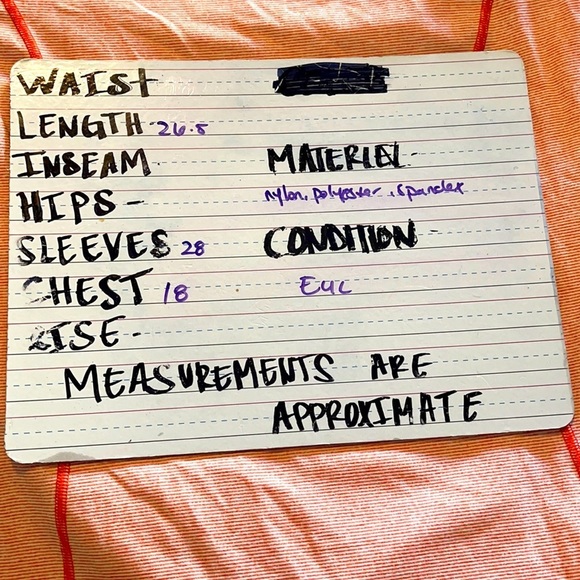 WAIST
LENGTH - 26.5
INSEAM
MATERIAL -
HIPS -
nylon, polyester, spandex
SLEEVES 28
CONDITION -
CHEST 18
EUC
RISE -
MEASUREMENTS ARE
APPROXIMATE